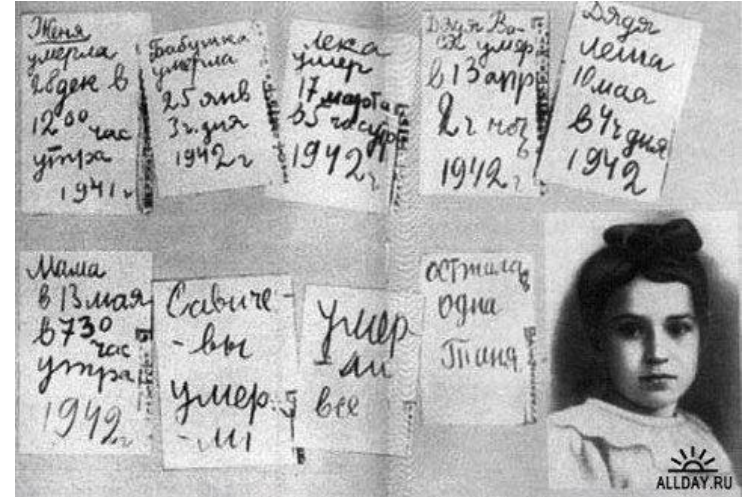 Женя
умерла
28 дек в
12 00 час
утра
1941 г
Бабушка
умерла
25 янв
3 ч. дня
1942 г
Лека
умер
17 марта
в 5 час утр
1942 г
Дядя Ва-
ся умер
в 13 апр
2 ч ноч
1942 г
Дядя
Леша
10 мая
в 4 ч дня
1942
Мама
в 13 мая
в 7 30
час
утра
1942 г
Савиче-
-вы
умер-
-ли
умер
-ли
все
осталась
одна
Таня
ALLDAY.RU